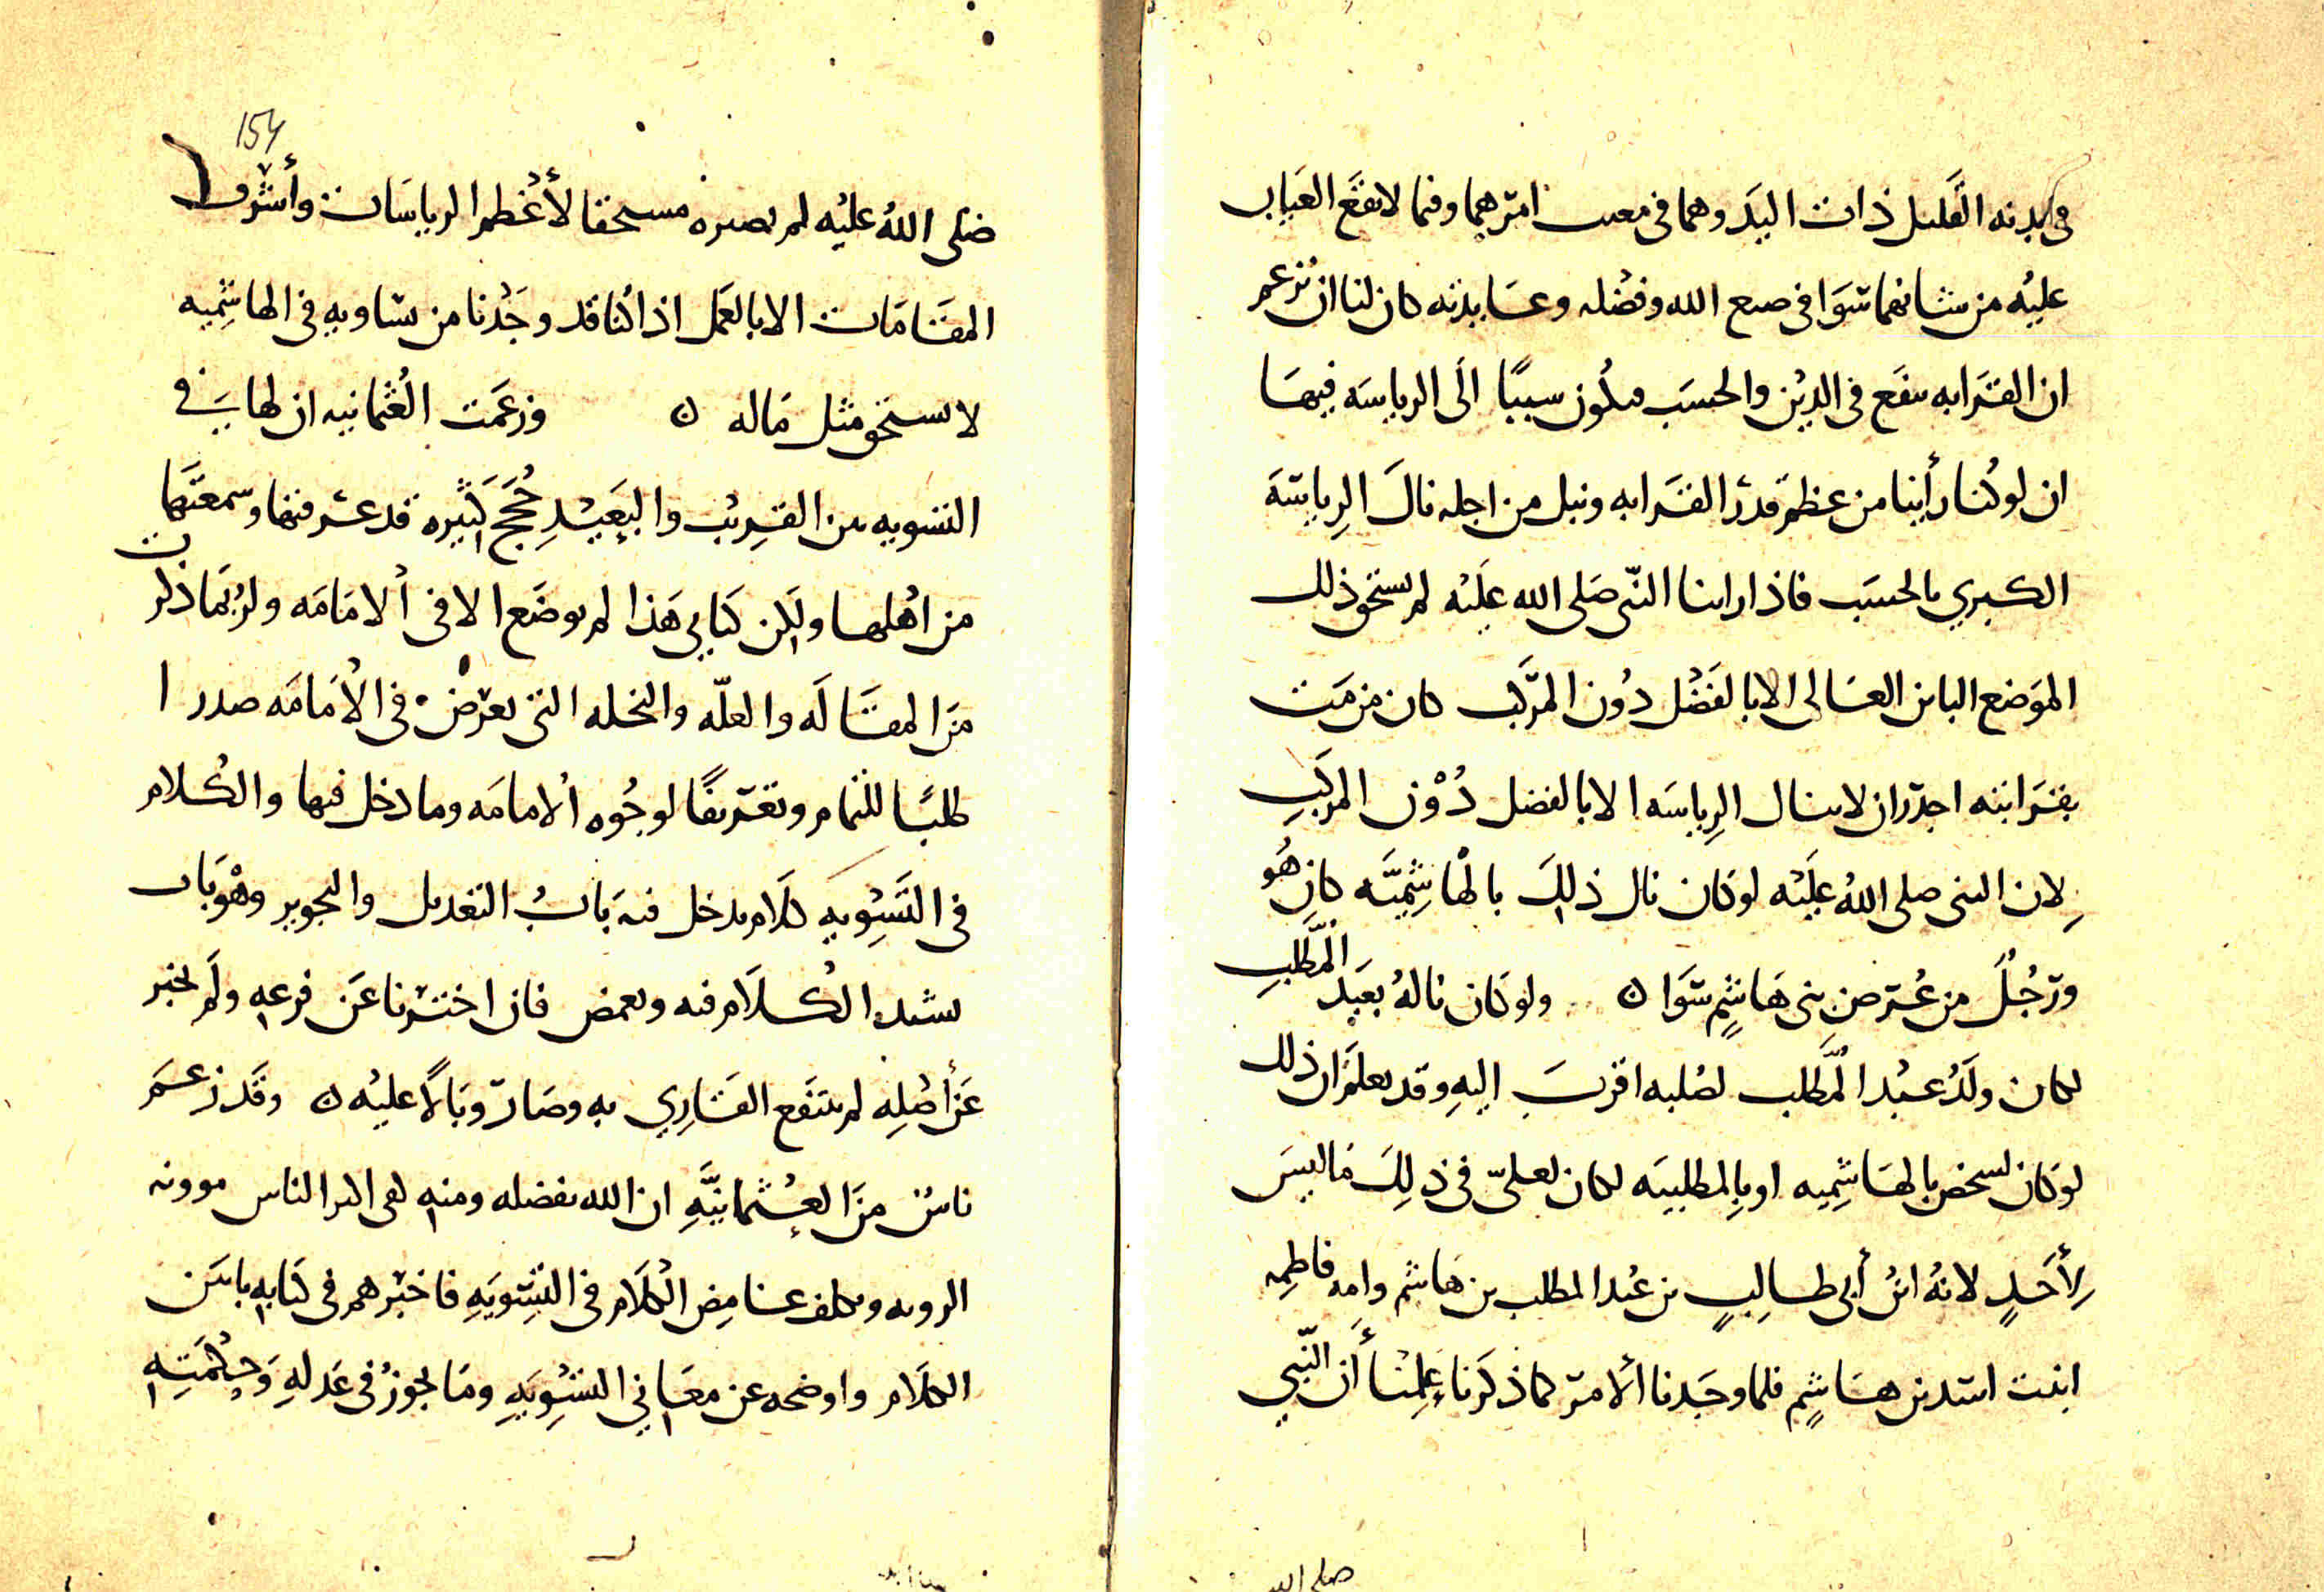 في بدنه القليل ذات اليد وهما في مغيب امرهما وفيما لا يقع العيان
عليه من شانهما سوا في صنع الله وفضله وعايدته كان لنا ان نزعم
ان القرابه تنفع في الدين والحسب وتكون سببًا الى الرياسه فيهَا
ان لو كنا رأينا من عظم قدر القرابه ونبل من اجله نالَ الرِياسَة
الكبري بالحسَب فاذا راينا النّبى صَلى الله عليْه لم يستحق ذلك
الموَضع الباين العَالى الا بالفَضْل دُون المرَّكب كان من مَت
بقَرابته اجدر ان لا ينال الرِياسَه الا بالفضل دُوْن المركَبِ
لِان النبى صلى اللهُ عليْه لو كان نال ذلِكَ بالهْاشِميَّه كان هُو
ورَجُلٌ من عُرض بنى هَاشِمٍ سَوَا ن ولو كان نالهُ بعَبْد المُطَّلبِ
لكان ولَدُ عبْد المُطَّلب لصُلبه اقربَ اليهِ وقد نعلمُ ان ذلك
لو كان يستحق بالهَاشِمِيه او بِالمطلبيَه لكان لعلىّ في ذلِكَ مَا ليسَ
لِأَحَدٍ لانهُ ابنُ أبى طالِبٍ بن عبْد المطلب بن هَاشم وامه فاطِمه
ابنت اسَد بن هاشِمٍ فلما وجَدنا ألامرَ كما ذكَرنا عَلِمْنا أَن النّبي
154
صَلى اللهُ عليْه لم يصيره مستحقا لأعْظم الرياسَات وأشْرف
المقَامَات الا بالعَمل اذ كُنا قد وجَدْنا من يسَاويهِ في الهاشِميه
لا يستحق مثل مَاله ن وزعَمت العُثمانيه ان لهَا في
التسْويه بين القرِيْب والبَعيْدِ حُجَج كَثيره قد عرفتها وسَمعتَها
من اهْلها ولكن كتابي هَذا لم يوضَع الا في الامَامَه ولربُما ذكرت
مَن المقَالَه والعلّه والنحله التى تعرض في الامَامَه صدرا
طلبًا للتمام وتعَريفًا لوجُوه الامامَه وما دخل فيها والكلام
في التَسْوِيهِ كلام يدخل فيهَ بابُ التعْديل والتجوير وهْوَ باب
يشتد الكلاَم فيه ويغمض فان اخبَرنا عَن فرعِه ولَم نخبر
عَن أصْلِه لم ينتَفع القَارِي به وصَارَ وَبَالًا عليْه ن وقَد زعَمَ
ناسٌ مَن العُثْمانيَّهِ ان الله بفضله ومنه كفى اكثر الناس موونه
الرويه وتكلف غَامِض الكلَام في التسْوِيَهِ فاخبَرهم في كتابه بابيَن
الكلَام واوضحه عن معَاني التسْوِيَهِ ومَا يجوزُ في عَدلهِ وَحِكْمَتِه